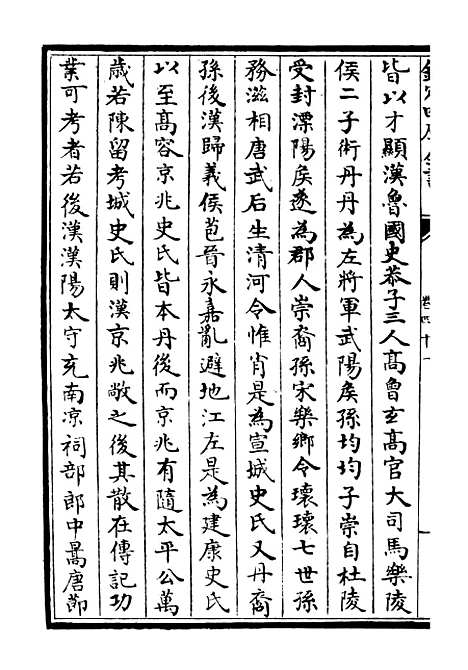 皆以才顯漢魯國史恭子三人高曾玄高官大司馬樂陵
侯二子術丹丹為左將軍武陽侯孫均均子崇自杜陵
受封溧陽侯遂為郡人崇裔孫宋樂鄉令瓌瓌七世孫
務滋相唐武后生清河令惟肖是為宣城史氏又丹裔
孫後漢歸義侯苞晉永嘉亂避地江左是為建康史氏
以至高容京兆史氏皆本丹後而京兆有隨太平公萬
歲若陳留考城史氏則漢京兆敞之後其散在傳記功
業可考者若後漢漢陽太守充南凉祠部郎中暠唐節